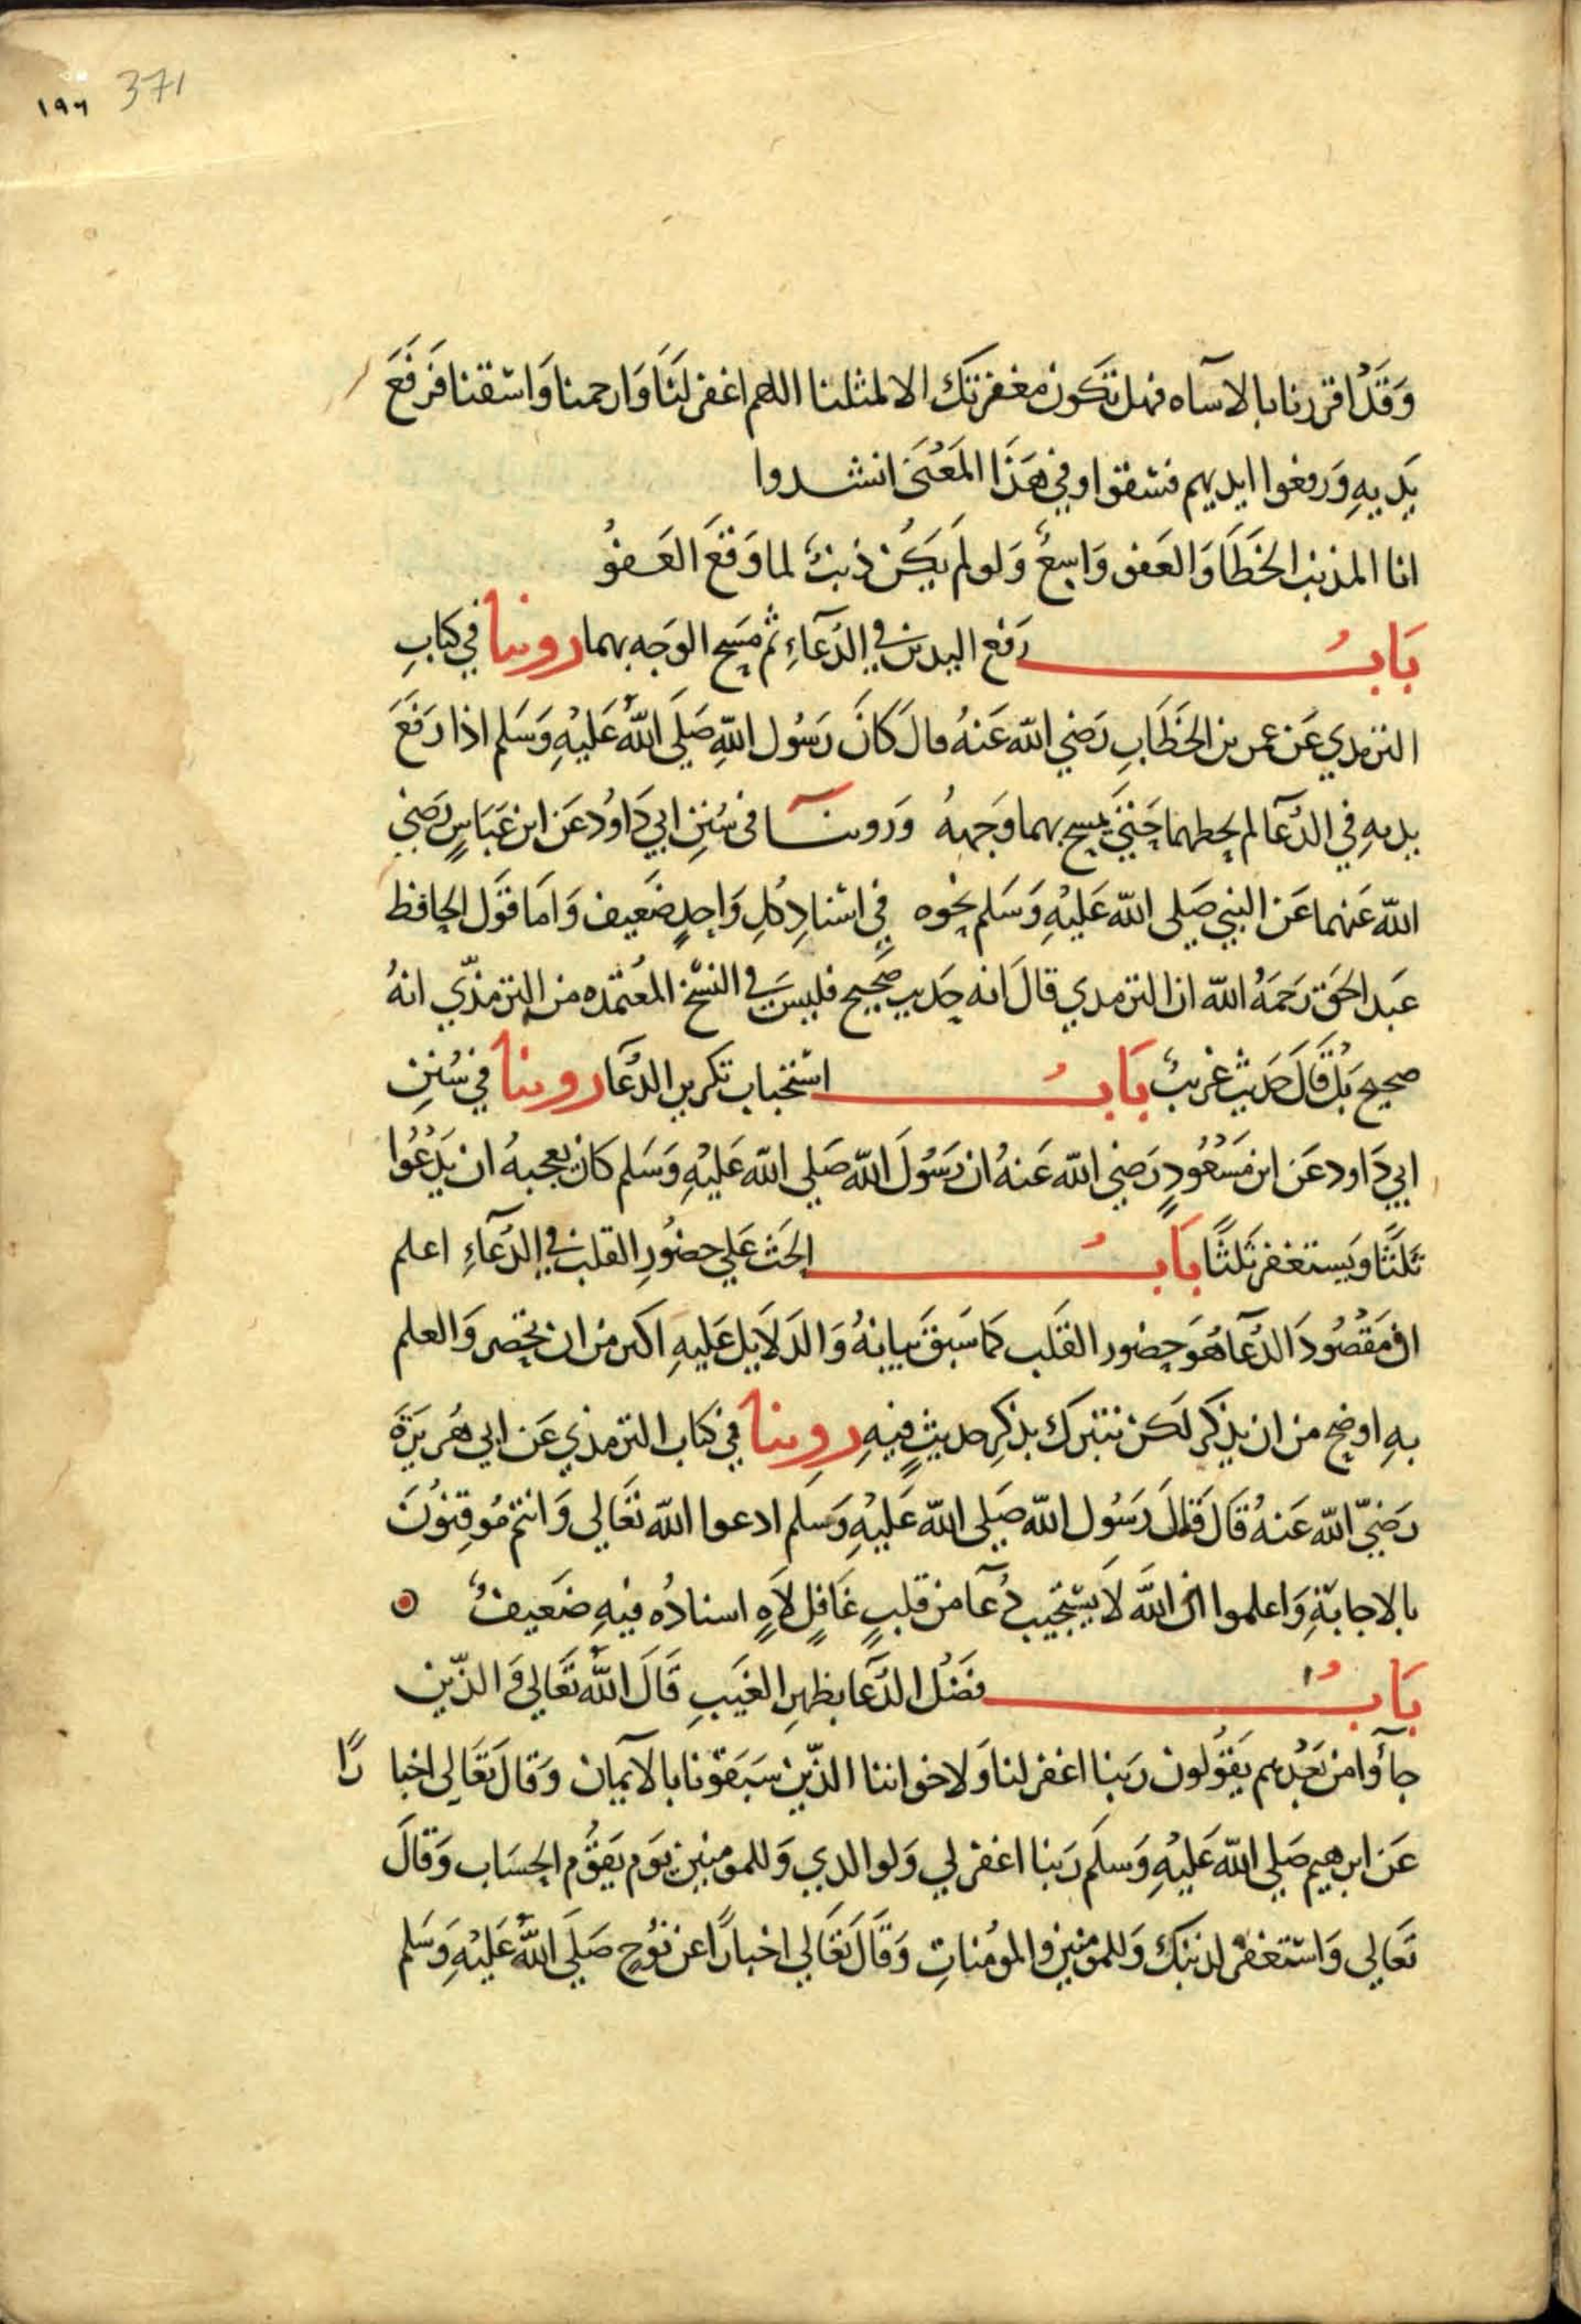 371 ١٩٦
وَقَدْ اقررنا بالاسآه فهل تكون مغفرتك الا لمثلنا اللهم اغفر لنَا وَارحمنا وَاسْقنا فَرَفَعَ
يَديهِ وَرفعوا ايديهم فسُقوا وفي هَذَا المَعْنَى انشدوا
انا المذنب الخَطَّا وَالعَفو وَاسِعٌ وَلو لَم يَكُن ذنبٌ لما وَقَعَ العَفوُ
بَابُ رَفع اليدين في الدُعآءِ ثم مَسح الوَجه بهما روينا في كتابِ
الترمدي عَن عمر بن الخَطَابِ رَضي الله عَنهُ قال كَانَ رَسُول اللهِ صَلى اللهُ عَليْهِ وَسَلم اذا رَفَعَ
يديهِ في الدُعآ لم يحطهما حَتىَ يمسح بهما وَجههُ وَروينا فى سُنَنِ ابي دَاوُد عَن ابن عَبَاسٍ رَضي
الله عَنهما عَن النبي صَلى الله عَليْهِ وَسَلم نحوه في اسْنادِ كُلِ وَاحدٍ ضَعيف وَامَا قَول الحافظ
عَبد الحَق رَحَمهُ الله ان الترمدي قال انه حَديث صَحيح فليسَ في النسخ المُعْتمده من الترمذي انهُ
صحيح بَل قَالَ حَديث غريبٌ بَابُ اسْتحباب تكرير الدُعَا روينا في سُنَنِ
ابي دَاود عَن ابن مَسْعُودٍ رَضي الله عَنهُ ان رَسُولَ الله صَلى الله عَليْهِ وَسَلم كان يعجبهُ ان يَدْعُوا
ثَلثًا وَيَستغفر ثَلثًا بَابُ الحَث عَلي حضُورِ القلب في الدُعآءِ اعلم
ان مَقْصُودَ الدُعآ هُوَ حضور القَلب كما سَبَق بَيانهُ وَالدَلايل عَليهِ اكثر من ان تحصر وَالعلم
بهِ اوضح من ان يذكر لَكن نتبرك بذِكرِ حديثٍ فيهِ روينا في كتاب الترمذي عَن ابي هُرَيرَةَ
رَضيَ الله عَنهُ قَالَ قَالَ رَسُول الله صَلى الله عَليْهِ وَسَلم ادعوا الله تَعَالي وَانتم مُوقِنوُنَ
بالاجابَةِ وَاعلموا ان اللهَ لاَ يسْتجيب دُعآ من قلبٍ غَافلٍ لاَهٍ اسنادُه فيهِ ضَعيفٌ
بَابُ فضَلُ الدُعَآ بظهرِ الغَيبِ قَالَ اللهُ تَعَالي وَالذّين
جآؤا من بَعْدهم يَقوُلون رَبنا اغفر لنا وَلاخواننا الذّين سَبَقوُنا بالاَيمان وَقال تَعَالى اخبارًا
عَن ابرهيم صَلى الله عَليْهِ وَسَلم رَبنا اغفر لي وَلوالدي وَللمومنين يَوم يَقوُم الحسَاب وَقالَ
تَعَالي وَاسْتغفر لذنبَك وَللمومنين والمومُناتِ وَقَالَ تَعَالي اخبارًا عن نوُحٍ صَلَى اللهُ عَليْهِ وَسَلم